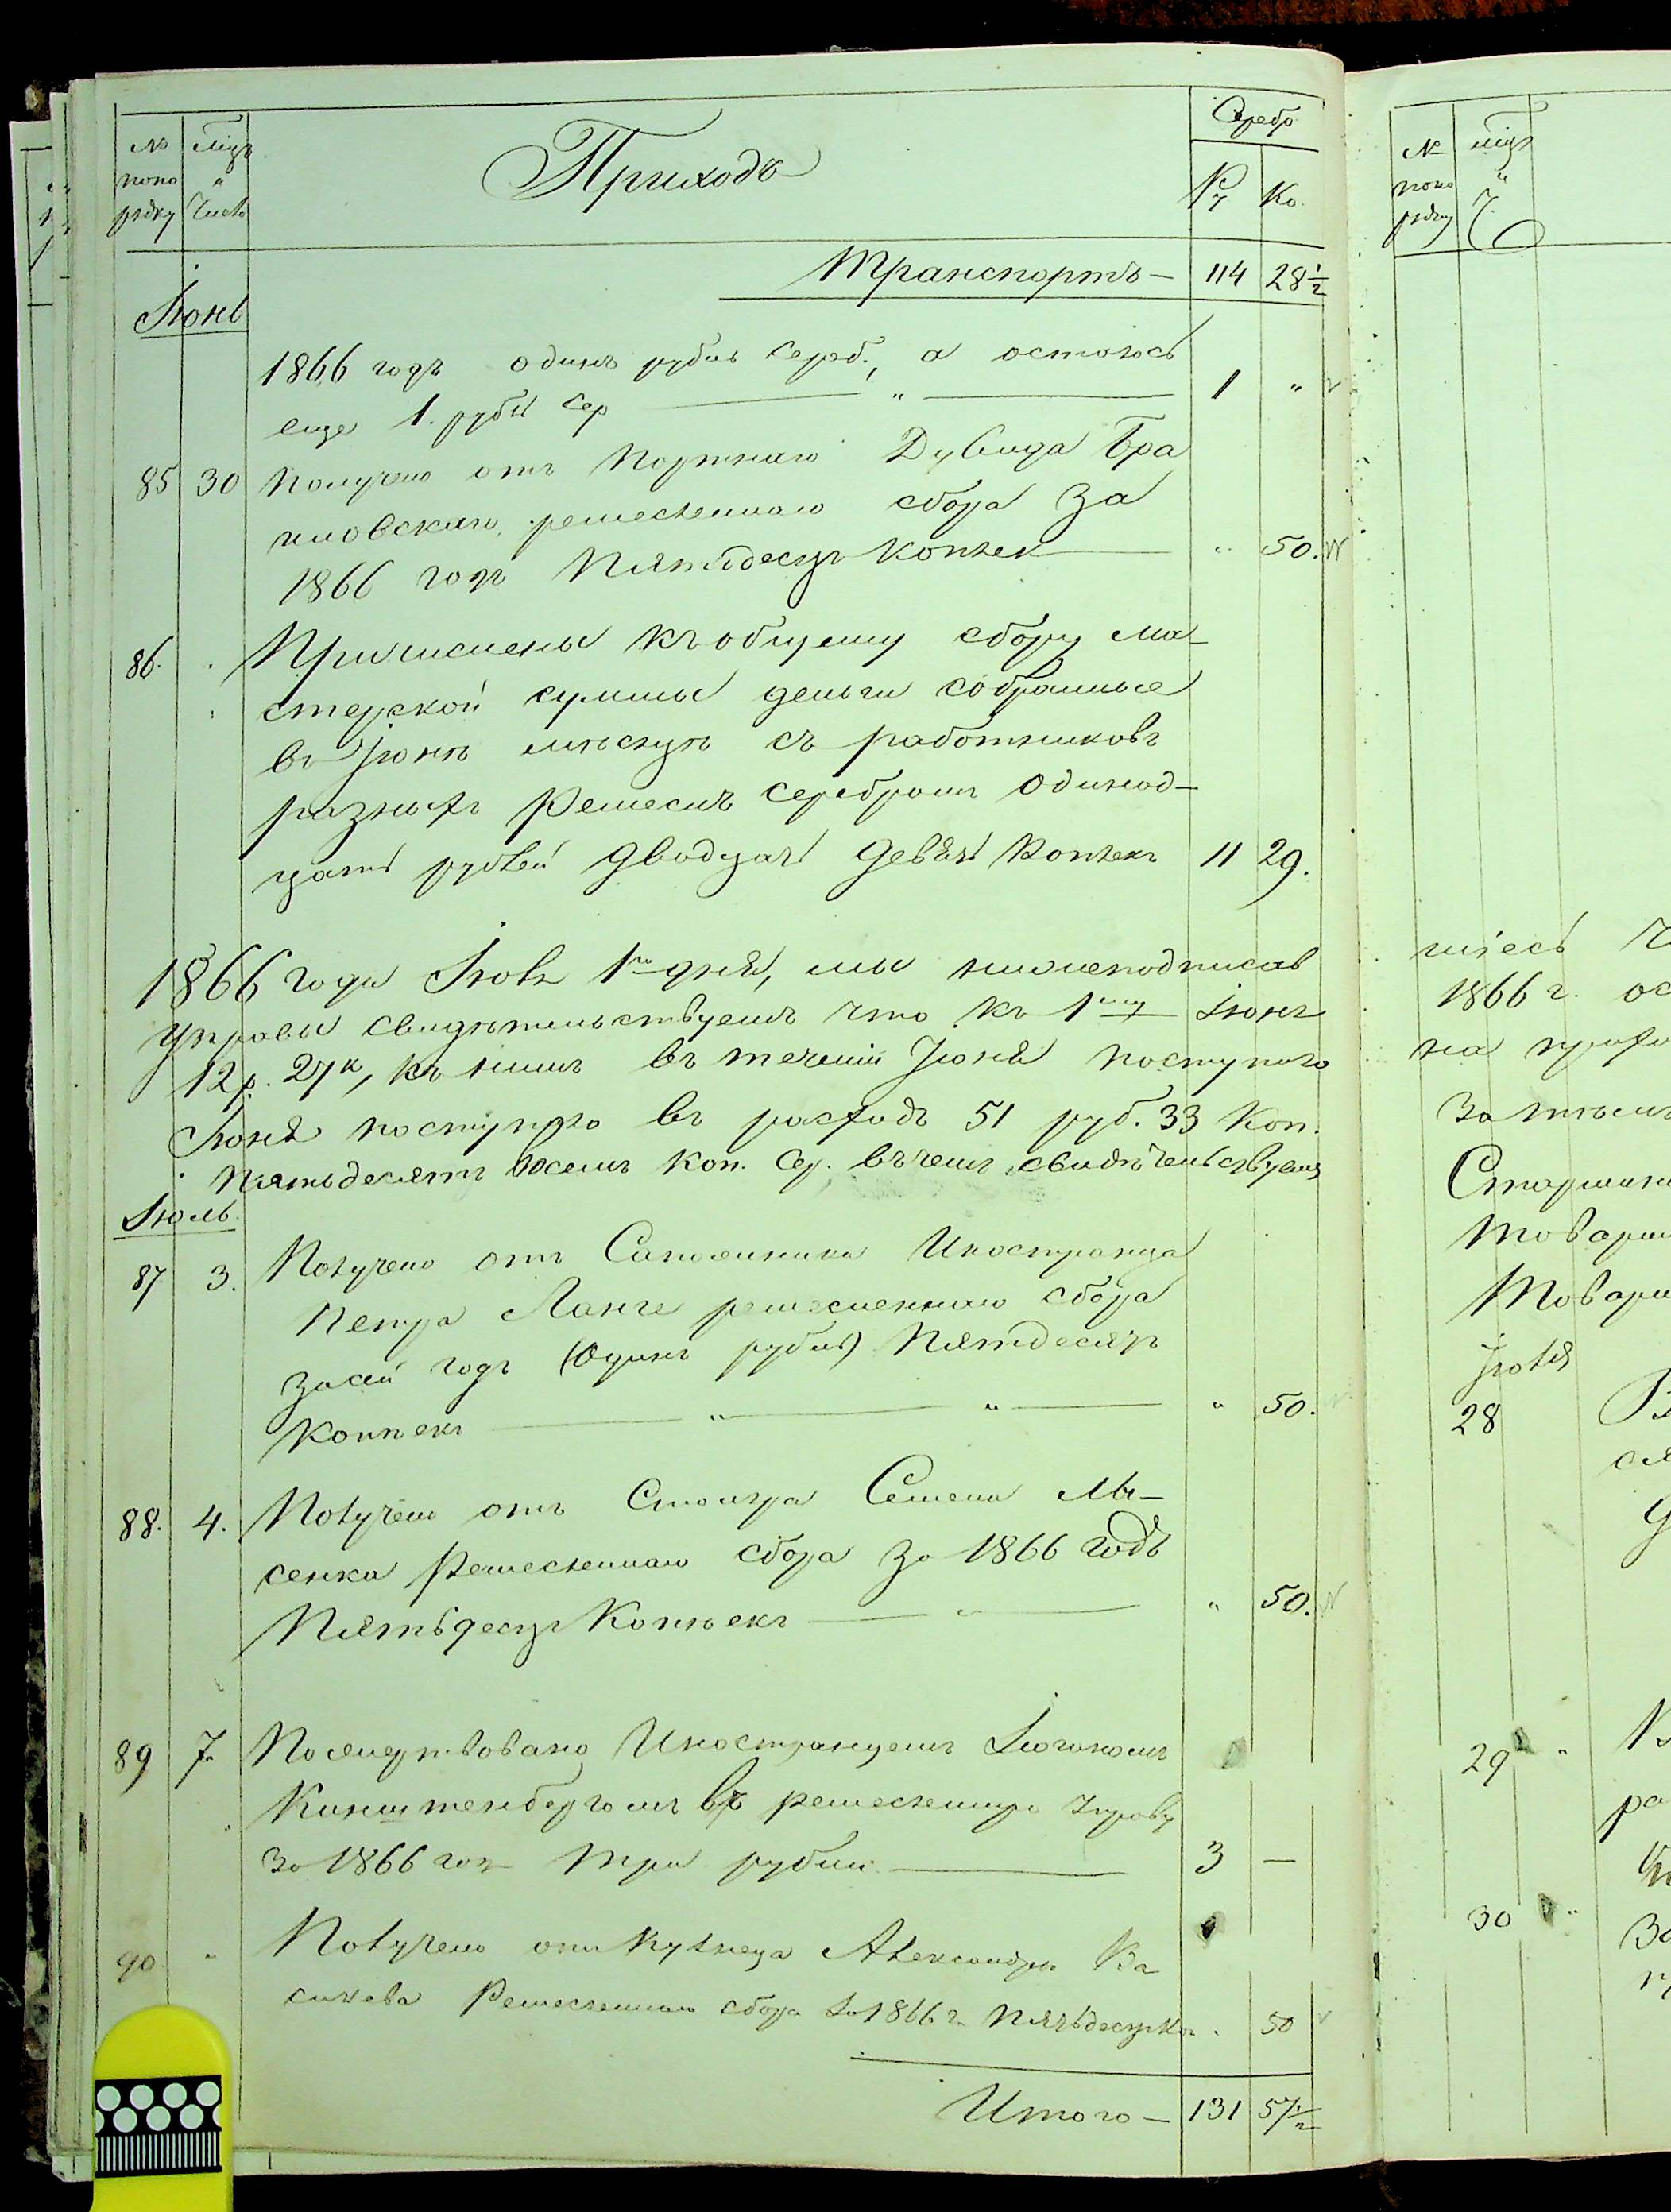 Серебр
№ Мцъ Приходъ
попо " Ру Ко.
рядку Число
Транспортъ — 114 28 1/2
Іюнь
1866 годъ одинъ рубль сереб., а осталось
еще 1. рубль сер — " — 1 "
85 30 Получено отъ Портнаго Дувида Бра
иловскаго, ремесленнаго сбора За
1866 годъ Пятьдесятъ копѣек — " 50.
86. Причислены къ общему сбору ма-
стерской суммы деньги собранные
въ Іюнѣ мѣсяцѣ съ работниковъ
разныхъ Ремеслъ Серебромъ Одинад-
цать рублей двадцать девять Копѣекъ 11 29.
1866 года Іюля 1го дня, мы нижеподписав
Управы свидѣтельствуемъ что къ 1му Іюня
12 р. 27 к, къ нимъ въ теченіи Іюня поступило
Іюня поступило въ расходъ 51 руб. 33 Коп.
Пятьдесятъ семь коп. Сер. въ чемъ свидѣтельствуемъ
Іюль.
87 3. Получено отъ Сапожника Иностранца
Петра Ланге ремесленнаго сбора
за сей годъ (Одинъ рубль) Пятьдесятъ
Копѣекъ — " — " — " 50.
88. 4. Получено отъ Столяра Семена Мы-
сенка Ремесленнаго сбора за 1866 годъ
Пятьдесятъ Копѣекъ — " — " 50.
89 7. Пожертвовано Иностранцемъ
въ ремесленную Управу
За 1866 годъ Три рубли — 3 —
90 " Получено отъ Кузнеца Александра Ва
сильева Ремесленнаго сбора за 1866 г. Пятьдесятъ Ко . 50
Итого — 131 57 1/2
№ мцъ
попо "
рядку Ч.
шіесь
1866 г. ос
на
За тѣмъ
Старшина
Товарищ
Товарищ
Іюля
28
29 "
30 "